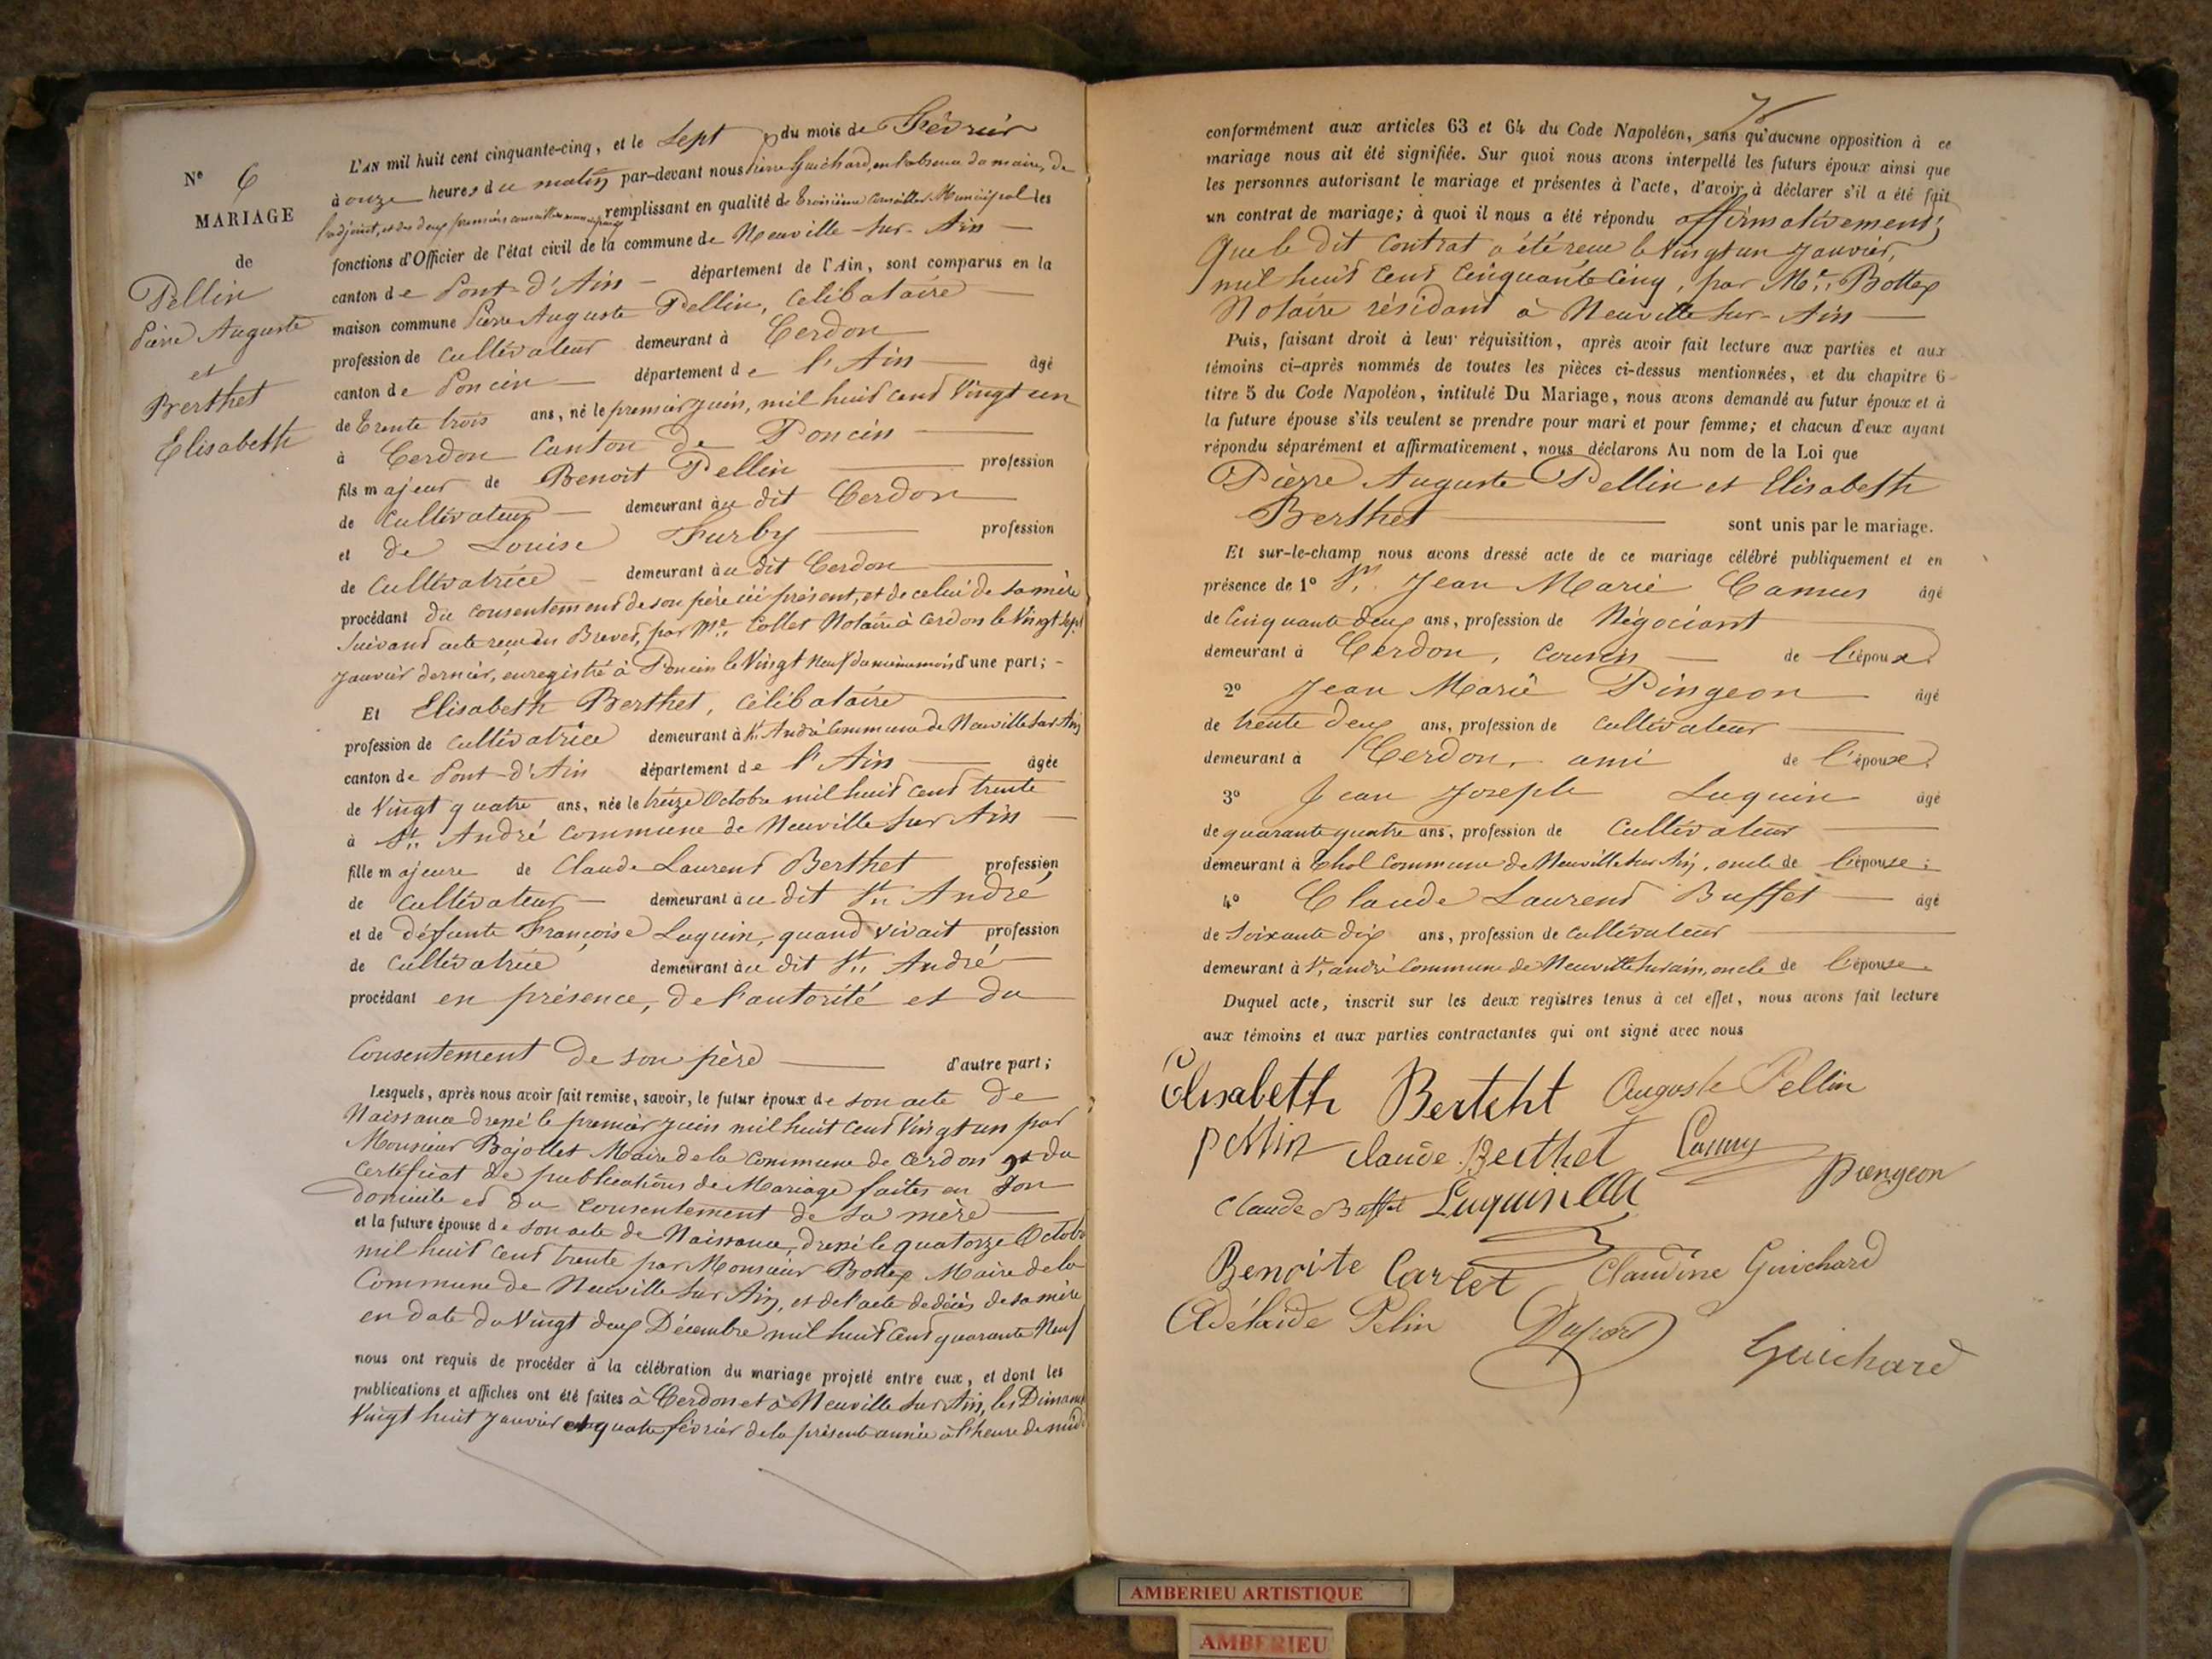 N° 6
MARIAGE
de
Pellin
Pierre Auguste
et
Berthet
Elisabeth
L'AN mil huit cent cinquante-cinq, et le Sept du mois de Février
à onze heures du matin par-devant nous Pierre Guichard, en l'absence du maire, de
l'adjoint, et des deux premiers conseillers municipaux remplissant en qualité de troisième Conseiller Municipal les
fonctions d'Officier de l'état civil de la commune de Neuville-sur-Ain
canton de Pont-d'Ain département de l'Ain, sont comparus en la
maison commune Pierre Auguste Pellin, célibataire
profession de Cultivateur demeurant à Cerdon
canton de Poncin département de l'Ain âgé
de Trente trois ans, né le premier juin, mil huit cent Vingt un
à Cerdon Canton de Poncin
fils majeur de Benoit Pellin profession
de Cultivateur demeurant au dit Cerdon
et de Louise Furby profession
de Cultivatrice demeurant au dit Cerdon
procédant du consentement de son père ici présent, et de celui de sa mère
suivant acte reçu en Brevet, par Me. Collet Notaire à Cerdon le Vingt Sept
janvier dernier, enregistré à Poncin le Vingt Neuf du même mois d'une part; -
Et Elisabeth Berthet, célibataire
profession de Cultivatrice demeurant à St. André Commune de Neuville sur Ain
canton de Pont-d'Ain département de l'Ain âgée
de Vingt quatre ans, née le treize Octobre mil huit cent trente
à St. André commune de Neuville sur Ain
fille majeure de Claude Laurent Berthet profession
de Cultivateur demeurant au dit St. André
et de défunte Françoise Luquin, quand vivait profession
de Cultivatrice demeurant au dit St. André
procédant en présence, de l'autorité et du
Consentement de son père d'autre part;
Lesquels, après nous avoir fait remise, savoir, le futur époux de son acte de
Naissance dressé le premier juin mil huit cent Vingt un par
Monsieur Bajollet Maire de la commune de Cerdon et du
certificat de publications de Mariage faites en son
domicile et du consentement de sa mère
et la future épouse de son acte de Naissance, dressé le quatorze Octobre
mil huit cent trente par Monsieur Bottex Maire de la
Commune de Neuville sur Ain, et de l'acte de décès de sa mère
en date du Vingt deux Décembre mil huit cent quarante Neuf
nous ont requis de procéder à la célébration du mariage projeté entre eux, et dont les
publications et affiches ont été faites à Cerdon et à Neuville sur Ain, les Dimanches
Vingt huit janvier et quatre février de la présente année à l'heure de midi
conformément aux articles 63 et 64 du Code Napoléon, sans qu'aucune opposition à ce
mariage nous ait été signifiée. Sur quoi nous avons interpellé les futurs époux ainsi que
les personnes autorisant le mariage et présentes à l'acte, d'avoir à déclarer s'il a été fait
un contrat de mariage; à quoi il nous a été répondu affirmativement;
Que le dit Contrat a été reçu le Vingt un Janvier,
mil huit Cent Cinquante Cinq, par Me. Bottex
Notaire résidant à Neuville Sur-Ain
Puis, faisant droit à leur réquisition, après avoir fait lecture aux parties et aux
témoins ci-après nommés de toutes les pièces ci-dessus mentionnées, et du chapitre 6
titre 5 du Code Napoléon, intitulé Du Mariage, nous avons demandé au futur époux et à
la future épouse s'ils veulent se prendre pour mari et pour femme; et chacun d'eux ayant
répondu séparément et affirmativement, nous déclarons Au nom de la Loi que
Pierre Auguste Pellin et Elisabeth
Berthet sont unis par le mariage.
Et sur-le-champ nous avons dressé acte de ce mariage célébré publiquement et en
présence de 1° Sr. Jean Marie Camus âgé
de Cinquante deux ans, profession de Négociant
demeurant à Cerdon, cousin de l'époux.
2° Jean Marie Pingeon âgé
de trente deux ans, profession de cultivateur
demeurant à Cerdon, ami de l'époux.
3° Jean Joseph Luquin âgé
de quarante quatre ans, profession de Cultivateur
demeurant à Thol Commune de Neuville sur Ain, oncle de l'épouse.
4° Claude Laurent Buffet âgé
de Soixante dix ans, profession de Cultivateur
demeurant à St. andré Commune de Neuville sur ain, oncle de l'épouse.
Duquel acte, inscrit sur les deux registres tenus à cet effet, nous avons fait lecture
aux témoins et aux parties contractantes qui ont signé avec nous
Elisabeth Bertcht Auguste Pellin
Pellin Claude Berthet Camus
Piengeon
Claude Buffet Luquin
Benoite Carlet Claudine Guichard
Adélaide Pelin Dupont
Guichard
AMBERIEU ARTISTIQUE
AMBERIEU